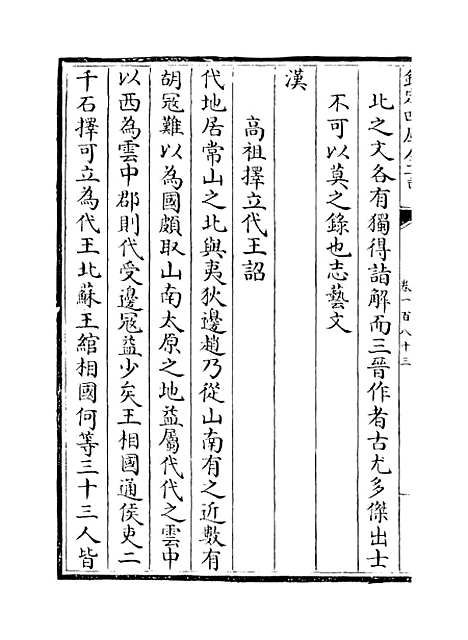 欽定四庫全書
卷一百八十三
此之文各有獨得詣解而三晉作者古尤多傑出士
不可以莫之錄也志藝文
漢
高祖擇立代王詔
代地居常山之北與夷狄邊趙乃從山南有之近數有
胡冦難以為國頗取山南太原之地益屬代代之雲中
以西為雲中郡則代受邊冦益少矣王相國通侯吏二
千石擇可立為代王北蘇王綰相國何等三十三人皆